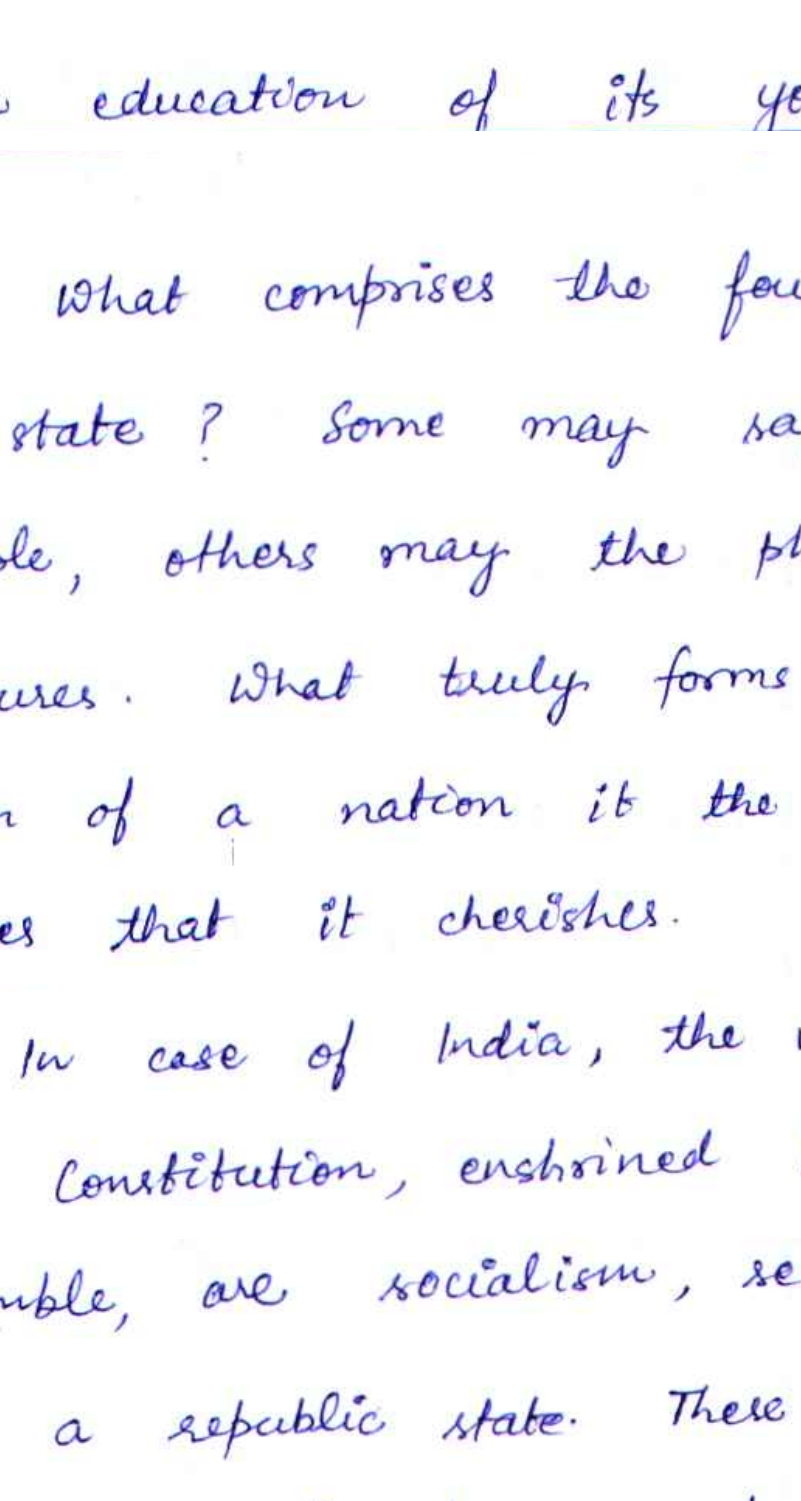 education of its yo
What comprises the fou
state ? Some may sa
ole, others may the ph
ures. What truly forms
n of a nation it the
es that it cherishes.
In case of India, the
Constitution, enshrined
mble, are socialism, se
a republic state. These